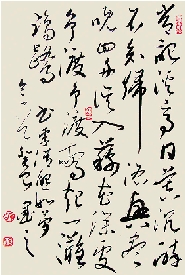 常記溪亭日暮沉醉
不知歸路興盡
晚回舟誤入藕花深處
爭渡爭渡驚起一灘
鷗鷺 書李清照如夢
令